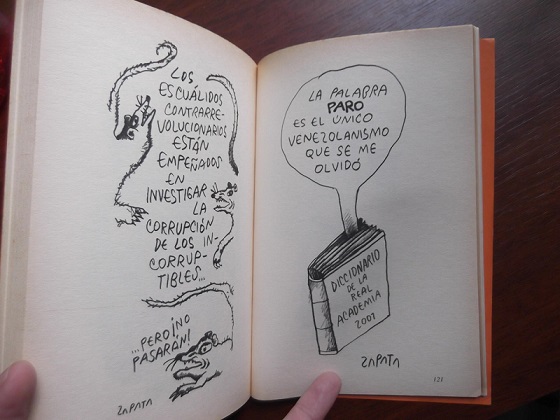 LOS
ESCUÁLIDOS
CONTRARRE-
VOLUCIONARIOS
ESTÁN
EMPEÑADOS
EN
INVESTIGAR
LA
CORRUPCIÓN
DE LOS IN-
CORRUP-
TIBLES...
...PERO ¡NO
PASARÁN!
ZAPATA
LA PALABRA
PARO
ES EL ÚNICO
VENEZOLANISMO
QUE SE ME
OLVIDÓ
DICCIONARIO
DE LA
REAL
ACADEMIA
2001
ZAPATA
121